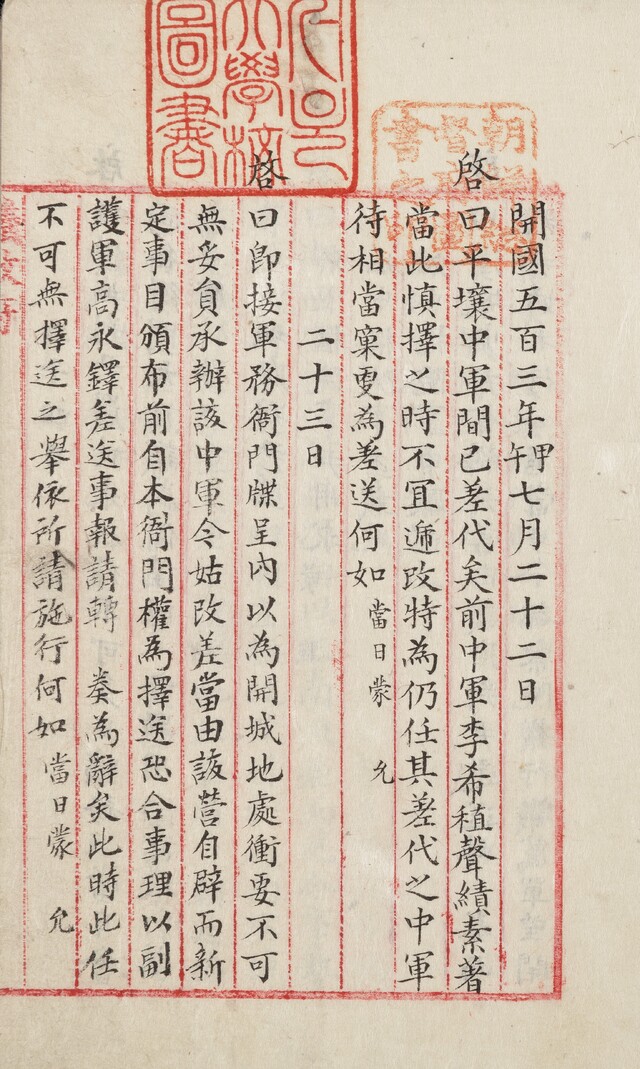 開國五百三年甲午七月二十二日
啓曰平壤中軍間已差代矣前中軍李希稙聲績素著
當此慎擇之時不宜遞改特為仍任其差代之中軍
待相當窠更為差送何如 當日蒙 允
二十三日
啓曰卽接軍務衙門牒呈內以為開城地處衝要不可
無妥員承辦該中軍令姑改差當由該營自辟而新
定事目頒布前自本衙門權為擇送恐合事理以副
護軍高永鐸差送事報請轉 奏為辭矣此時此任
不可無擇送之擧依所請施行何如 當日蒙 允
圖書